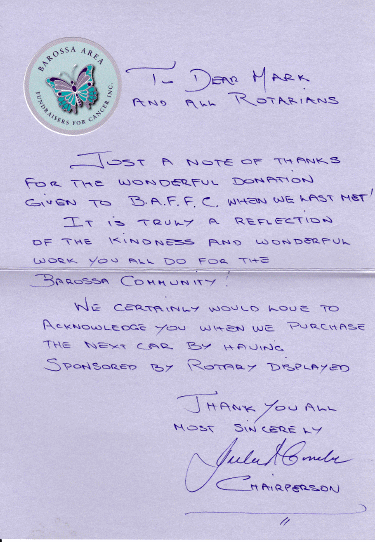 BAROSSA AREA
FUNDRAISERS FOR CANCER INC.
To Dear Mark
and all Rotarians
Just a note of thanks
for the wonderful donation
given to B.A.F.F.C. when we last met!
It is truly a reflection
of the kindness and wonderful
work you all do for the
Barossa Community!
We certainly would love to
acknowledge you when we purchase
the next car by having
sponsored by Rotary displayed
Thank you all
most sincerely
Chairperson